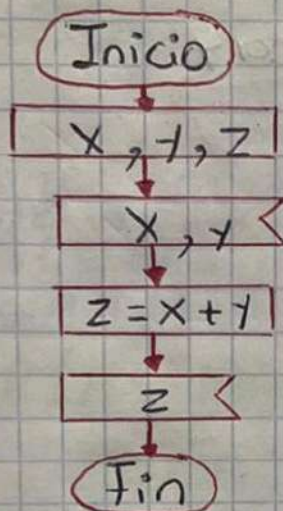 Inicio
X, Y, Z
X, Y
Z = X + Y
Z
Fin